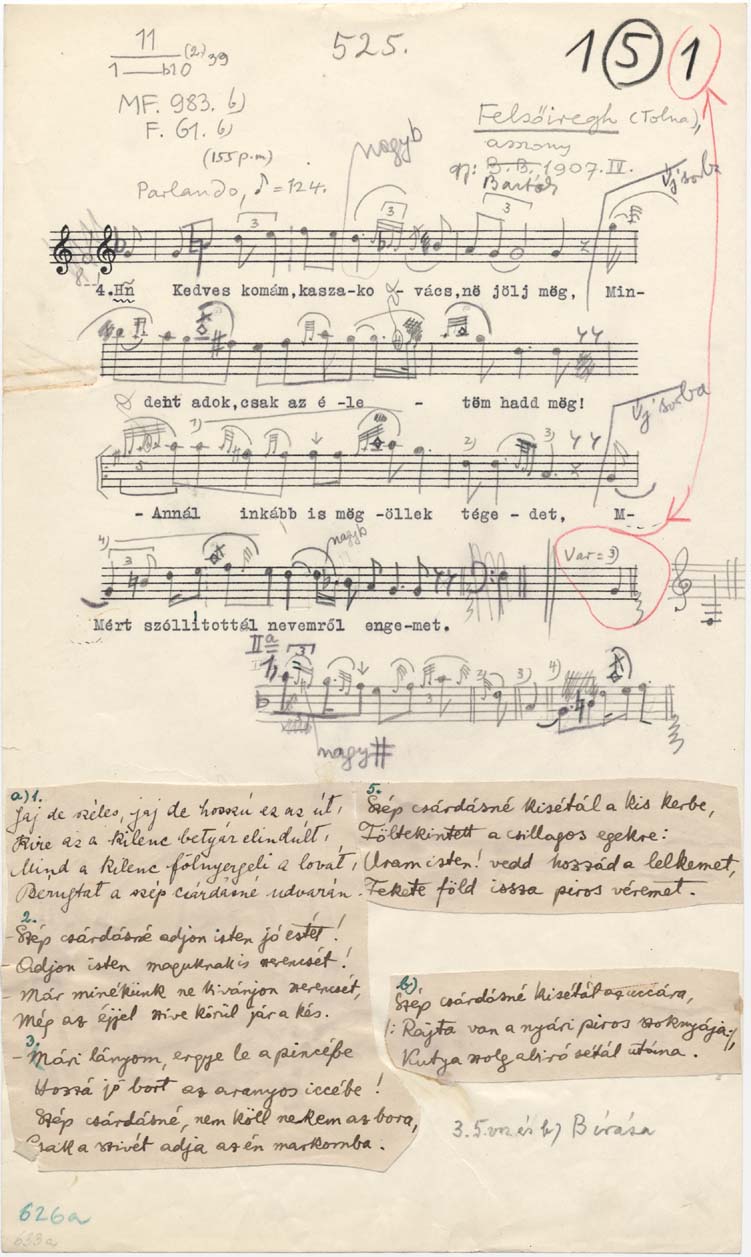 11
(2) 39
1 — b10
525.
1 5 1
MF. 983. b)
F. 61. b)
(155 p.m)
Parlando, ♪ = 124.
nagy b
Felsőiregh (Tolna),
asszony
gy: B.B. 1907. IV.
Bartók
Új sorba
3 3 3
4. Hn Kedves komám, kasza-ko - vács, nö jölj mög, Min-
dent adok, csak az é -le - töm hadd mög!
Új sorba
5 1) 2) 3)
- Annál inkább is mög -öllek tége - det, M-
4) 3
nagy b
Var = 3)
Mért szóllitottál nevemről enge-met.
II a
1) 3 3 2) 3) 4)
nagy #
a) 1.
Jaj de széles, jaj de hosszú ez az út,
Kire az a kilenc betyár elindúlt,
Mind a kilenc fölnyergeli a lovát,
Berugtat a szép csárdásné udvarán.
2.
- Szép csárdásné adjon isten jó estét!
- Adjon isten maguknak is szerencsét!
- Már minékünk ne kivánjon szerencsét,
Még az éjjel szive körül jár a kés.
3.
- Mári lányom, eregye le a pincébe
Hozzá jó bort az aranyos iccébe!
Szép csárdásné, nem köll nekem az bora,
Csak a szivét adja az én markomba.
5.
Szép csárdásné kisétál a kis kerbe,
Föltekintett a csillagos egekre:
Uram isten! vedd hozzád a lelkemet,
Fekete föld issza piros véremet.
b)
Szép csárdásné kisétál az uccára,
/: Rajta van a nyári piros szoknyája, :/
Kutya szolgabiró sétál utánna.
3. 5. vsz és b) Bírása
626a
633a